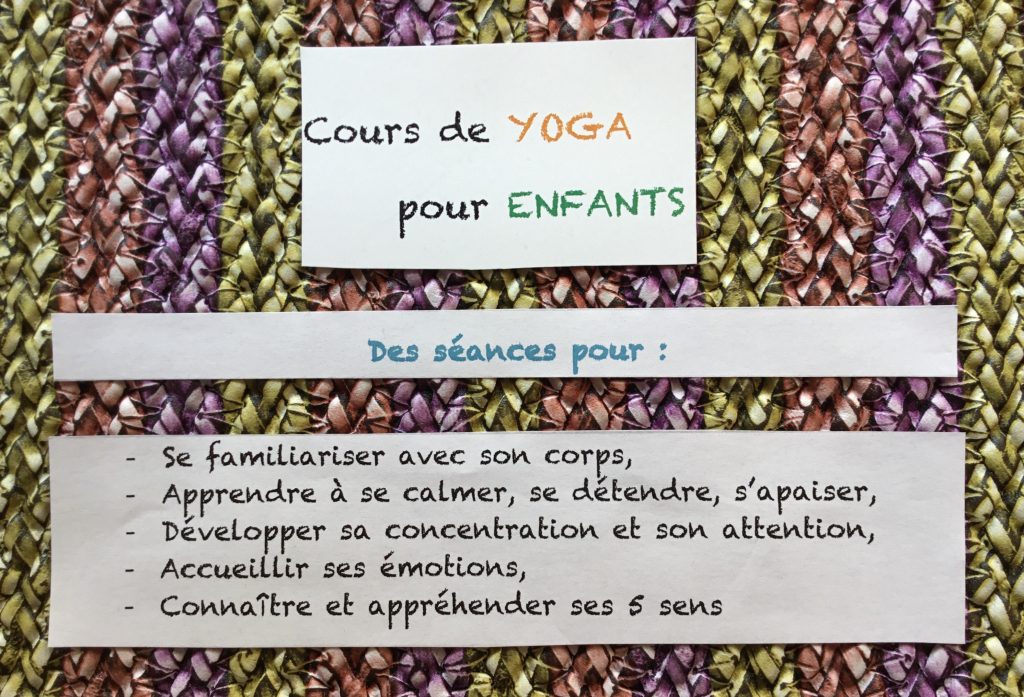 Cours de YOGA
pour ENFANTS
Des séances pour :
- Se familiariser avec son corps,
- Apprendre à se calmer, se détendre, s'apaiser,
- Développer sa concentration et son attention,
- Accueillir ses émotions,
- Connaître et appréhender ses 5 sens